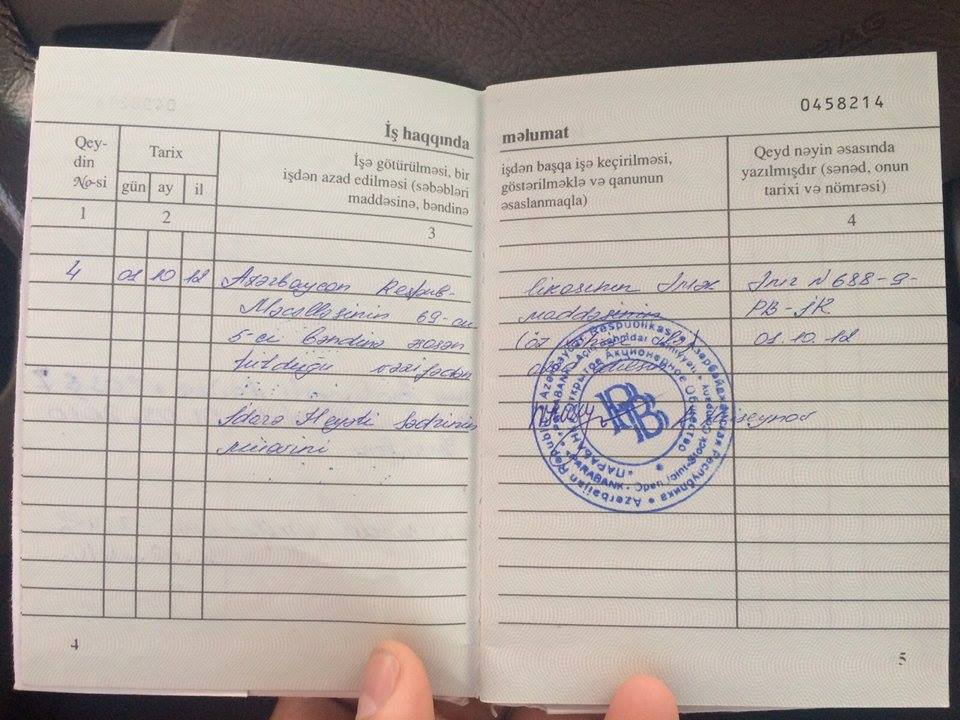 0458214
İş haqqında məlumat
Qey-
din
№-si
Tarix
gün ay il
İşə götürülməsi, bir
işdən azad edilməsi (səbəbləri
maddəsinə, bəndinə
işdən başqa işə keçirilməsi,
göstərilməklə və qanunun
əsaslanmaqla)
Qeyd nəyin əsasında
yazılmışdır (sənəd, onun
tarixi və nömrəsi)
1 2 3 4
4 01 10 12 Azərbaycan Respub- likasının Əmək Əmr N 688-9-
Məcəlləsinin 69-cu maddəsinin PB-İK
5-ci bəndinə əsasən 01.10.12
tutduğu vəzifədən
İdarə Heyəti sədrinin
müavini
Azərbaycan Respublikası
Азербайджанская Республика
Azerbaijan Republic
PARABANK
Açıq Səhmdar Cəmiyyəti
Открытое Акционерное Общество
ПАРАБАНК
PARABANK
Open Joint-Stock Company
PB
4
5